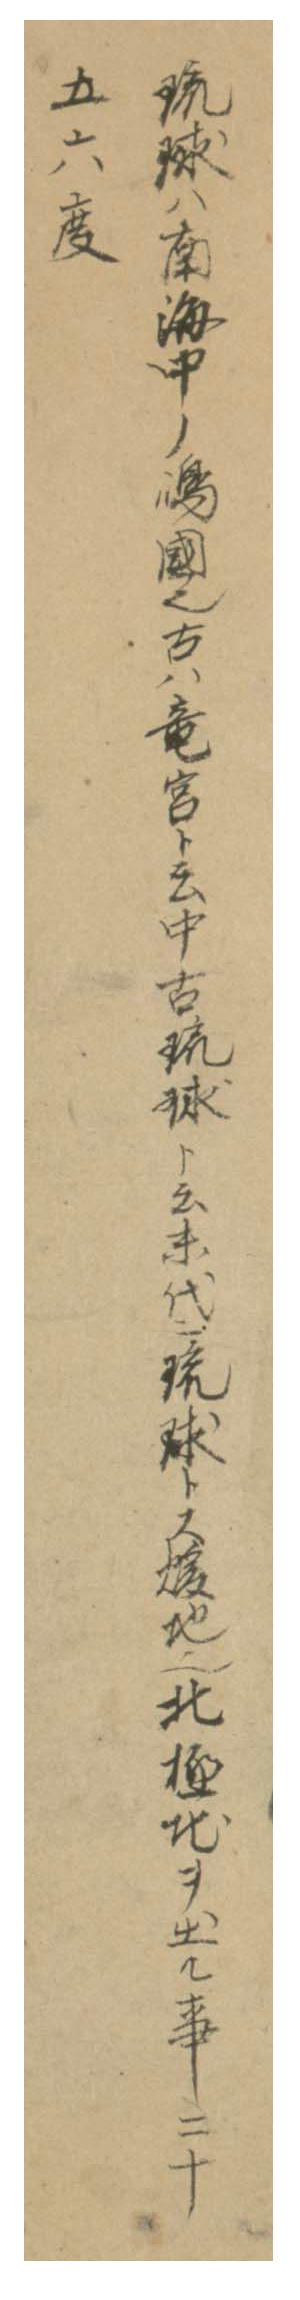 琉球ハ南海中ノ嶋國也古ハ竜宮ト云中古琉球ト云末代ニ琉球トス煖地也北極地ヲ出ル事二十
五六度